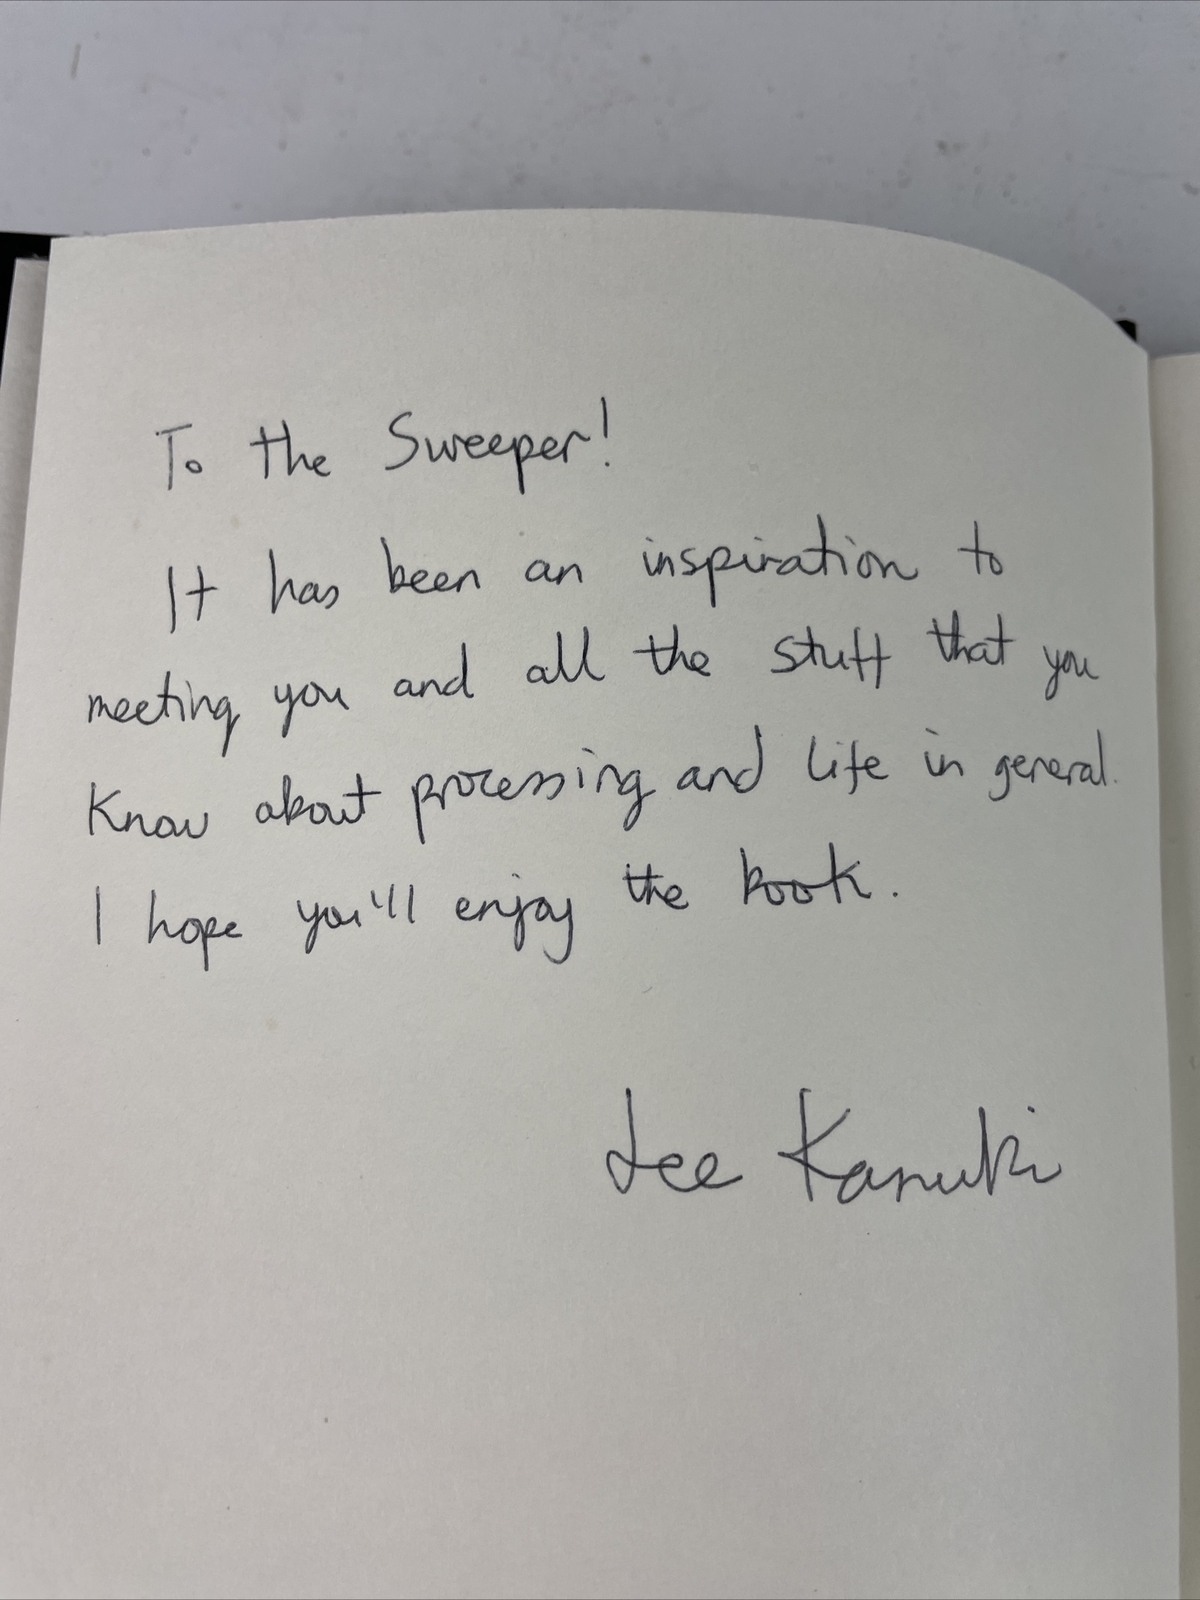 To the Sweeper!
It has been an inspiration to
meeting you and all the stuff that you
Know about processing and life in general.
I hope you'll enjoy the book.
Lee Kanuki